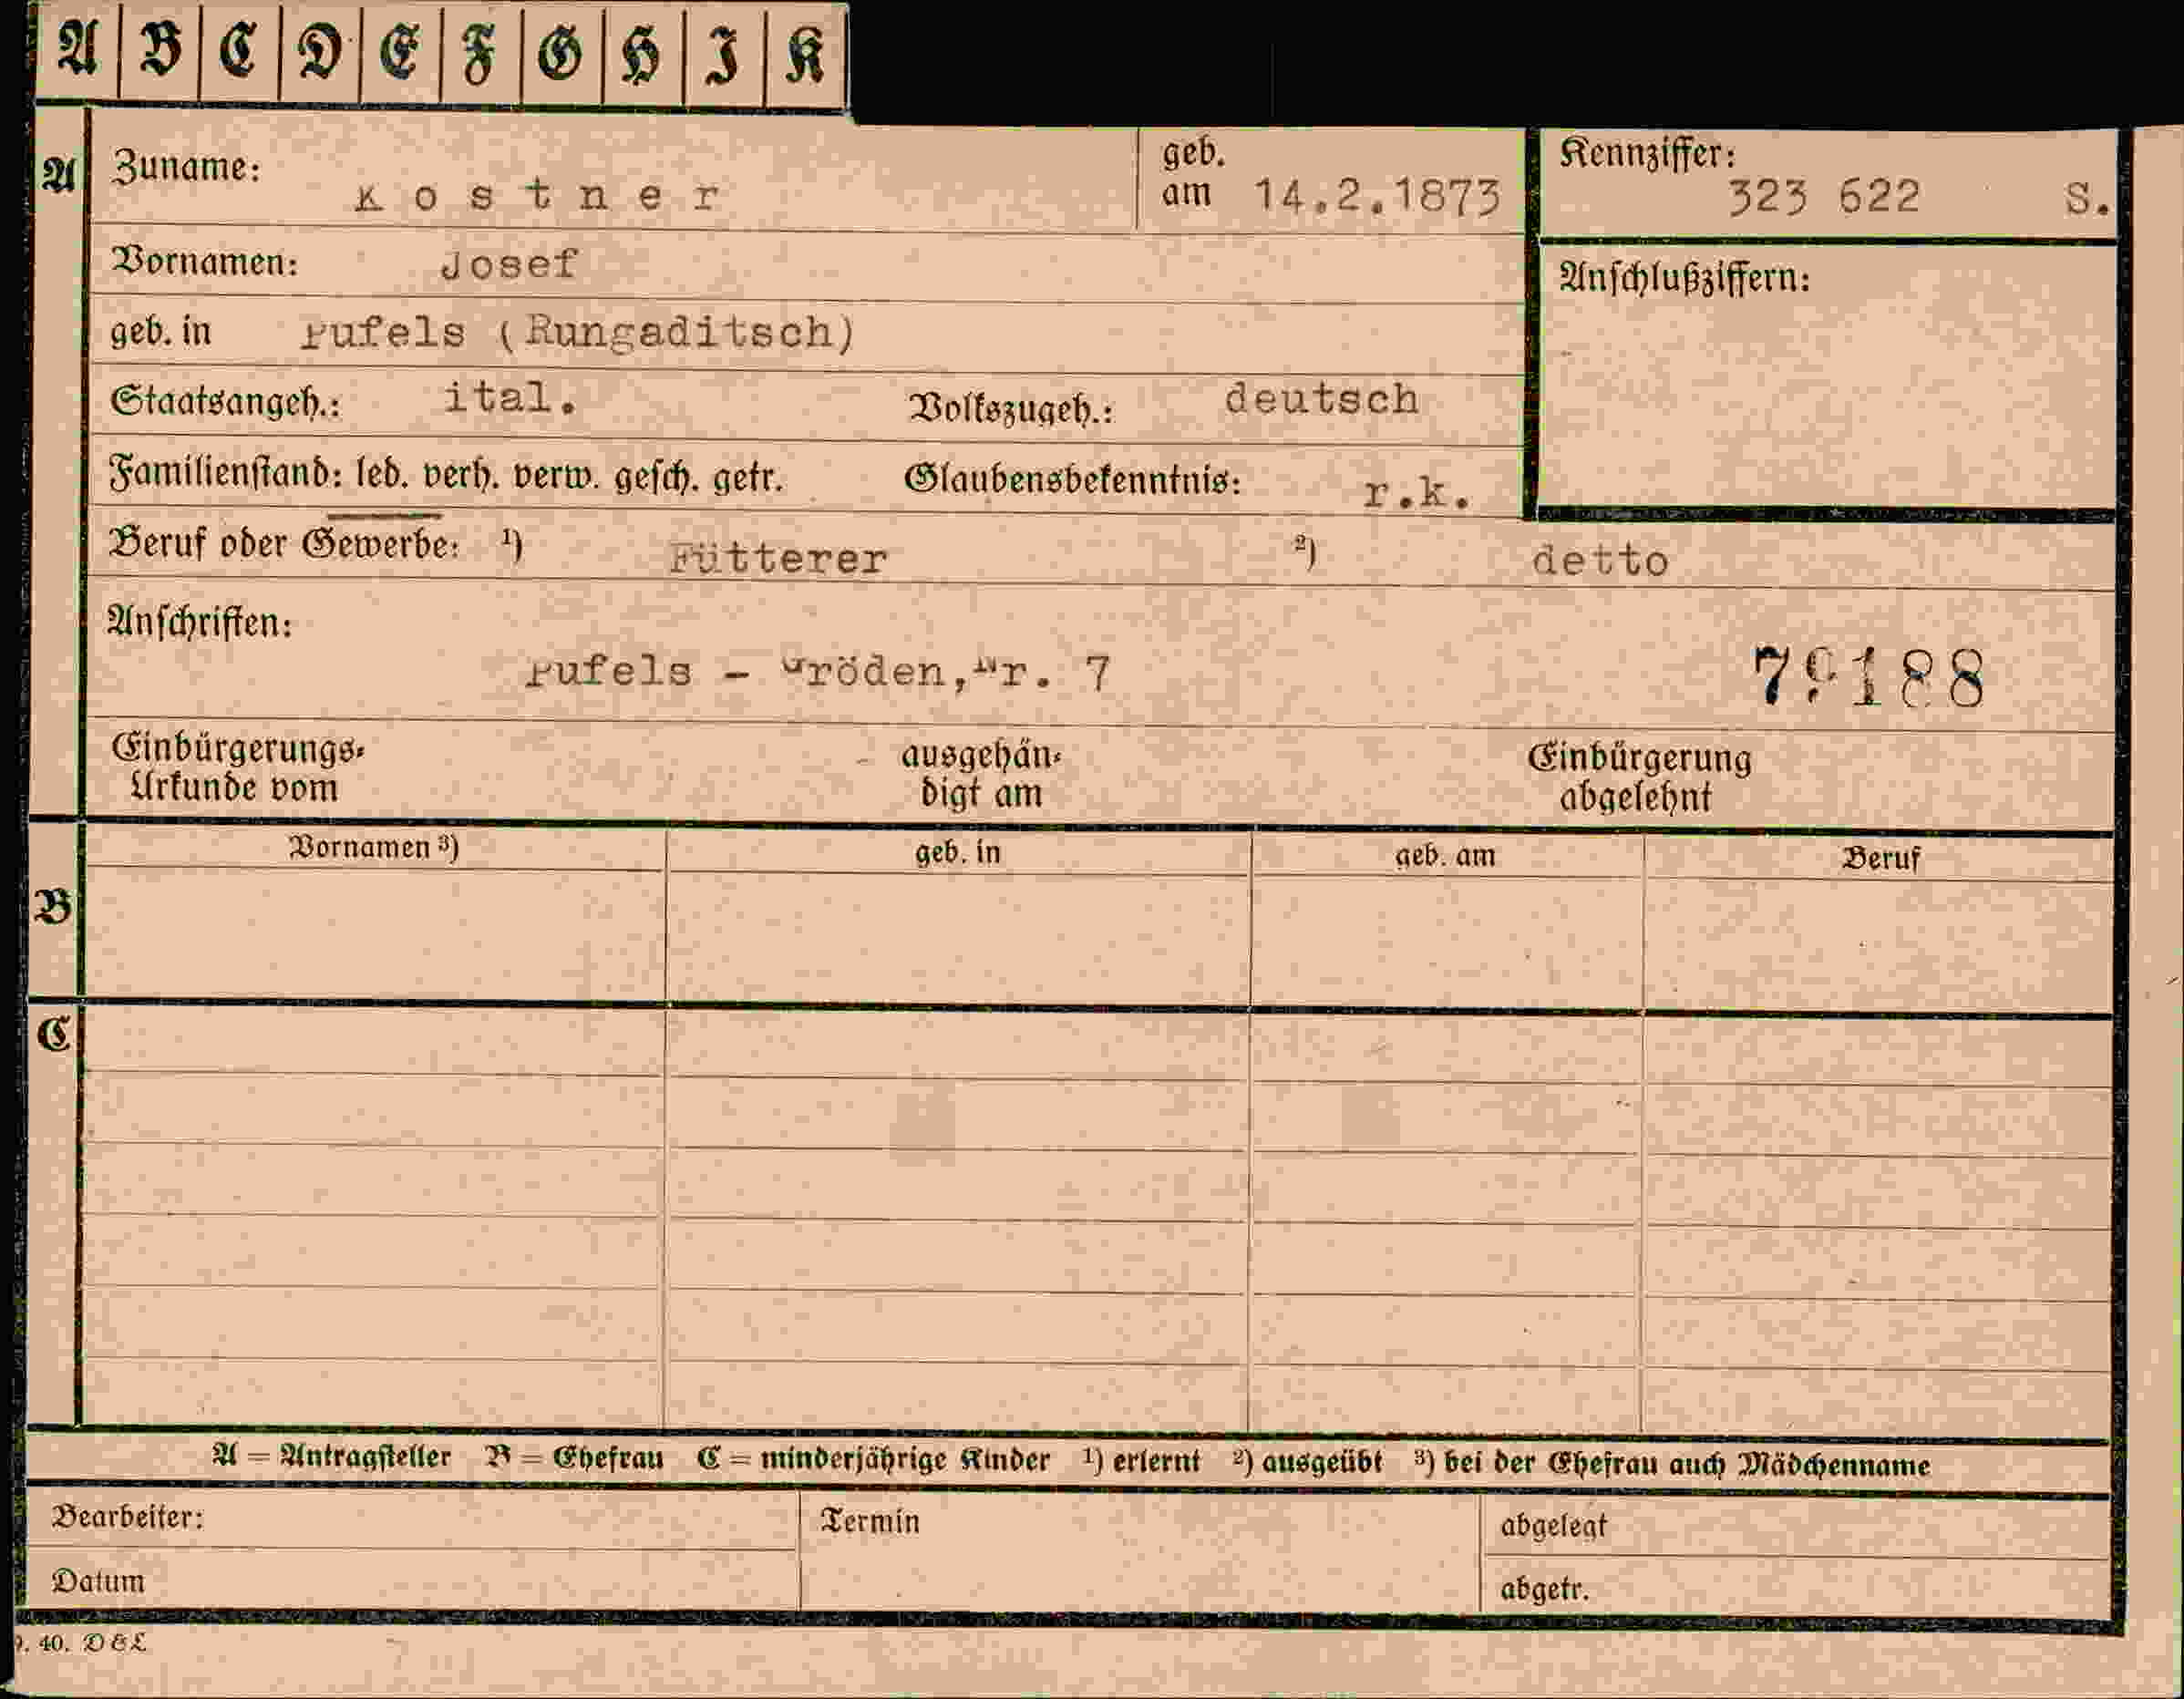 A B C D E F G H I K
A Zuname: Kostner geb. am 14.2.1873 Kennziffer: 323 622 S.
Vornamen: Josef Anschlußziffern:
geb. in Pufels (Rungaditsch)
Staatsangeh.: ital. Volkszugeh.: deutsch
Familienstand: led. verh. verw. gesch. getr. Glaubensbekenntnis: r.k.
Beruf oder Gewerbe: 1) Fütterer 2) detto
Anschriften:
Pufels - Gröden, Nr. 7 79188
Einbürgerungs- ausgehän- Einbürgerung
Urkunde vom digt am abgelehnt
Vornamen 3) geb. in geb. am Beruf
B
C
A = Antragsteller B = Ehefrau C = minderjährige Kinder 1) erlernt 2) ausgeübt 3) bei der Ehefrau auch Mädchenname
Bearbeiter: Termin abgelegt
Datum abgetr.
9. 40. D & L